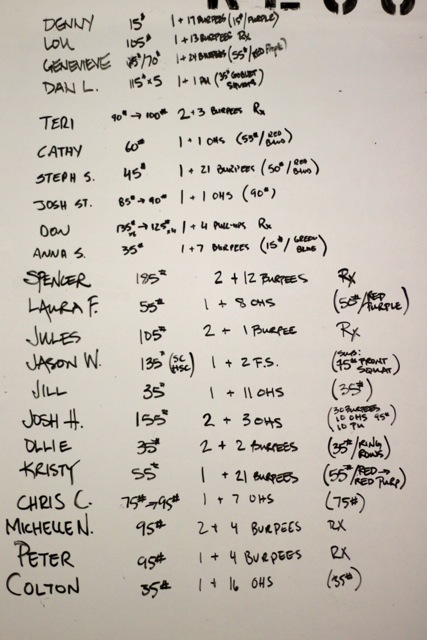 DENNY 15# 1 + 17 BURPEES (15#/PURPLE)
LOU 105# 1 + 13 BURPEES RX
GENEVIEVE /70# 1 + 21 BURPEES (55#/RED PURPLE)
DAN L. 115# x 5 1 + 1 PU (35# GOBLET SQUATS)
TERI 90# → 100# 2 + 3 BURPEES Rx
CATHY 60# 1 + 1 OHS (55#/RED BLUE)
STEPH S. 45# 1 + 21 BURPEES (50#/RED BLUE)
JOSH ST. 85# → 90# 1 + 1 OHS (90#)
DON 135# → 125# x4 1 + 4 PULL-UPS Rx
ANNA S. 35# 1 + 7 BURPEES (15#/GREEN BLUE)
SPENCER 185# 2 + 12 BURPEES Rx
LAURA F. 55# 1 + 8 OHS (50#/RED PURPLE)
JULES 105# 2 + 1 BURPEE Rx
JASON W. 135# (SC HSC) 1 + 2 F.S. (SUB: 75# FRONT SQUAT)
JILL 35# 1 + 11 OHS (35#)
JOSH H. 155# 2 + 3 OHS (30 BURPEES 10 OHS 95# 10 PU)
OLLIE 35# 2 + 2 BURPEES (35#/RING ROWS)
KRISTY 55# 1 + 21 BURPEES (55#/RED → RED PURP)
CHRIS C. 75# → 95# 1 + 7 OHS (75#)
MICHELLE N. 95# 2 + 4 BURPEES RX
PETER 95# 1 + 4 BURPEES RX
COLTON 35# 1 + 16 OHS (35#)